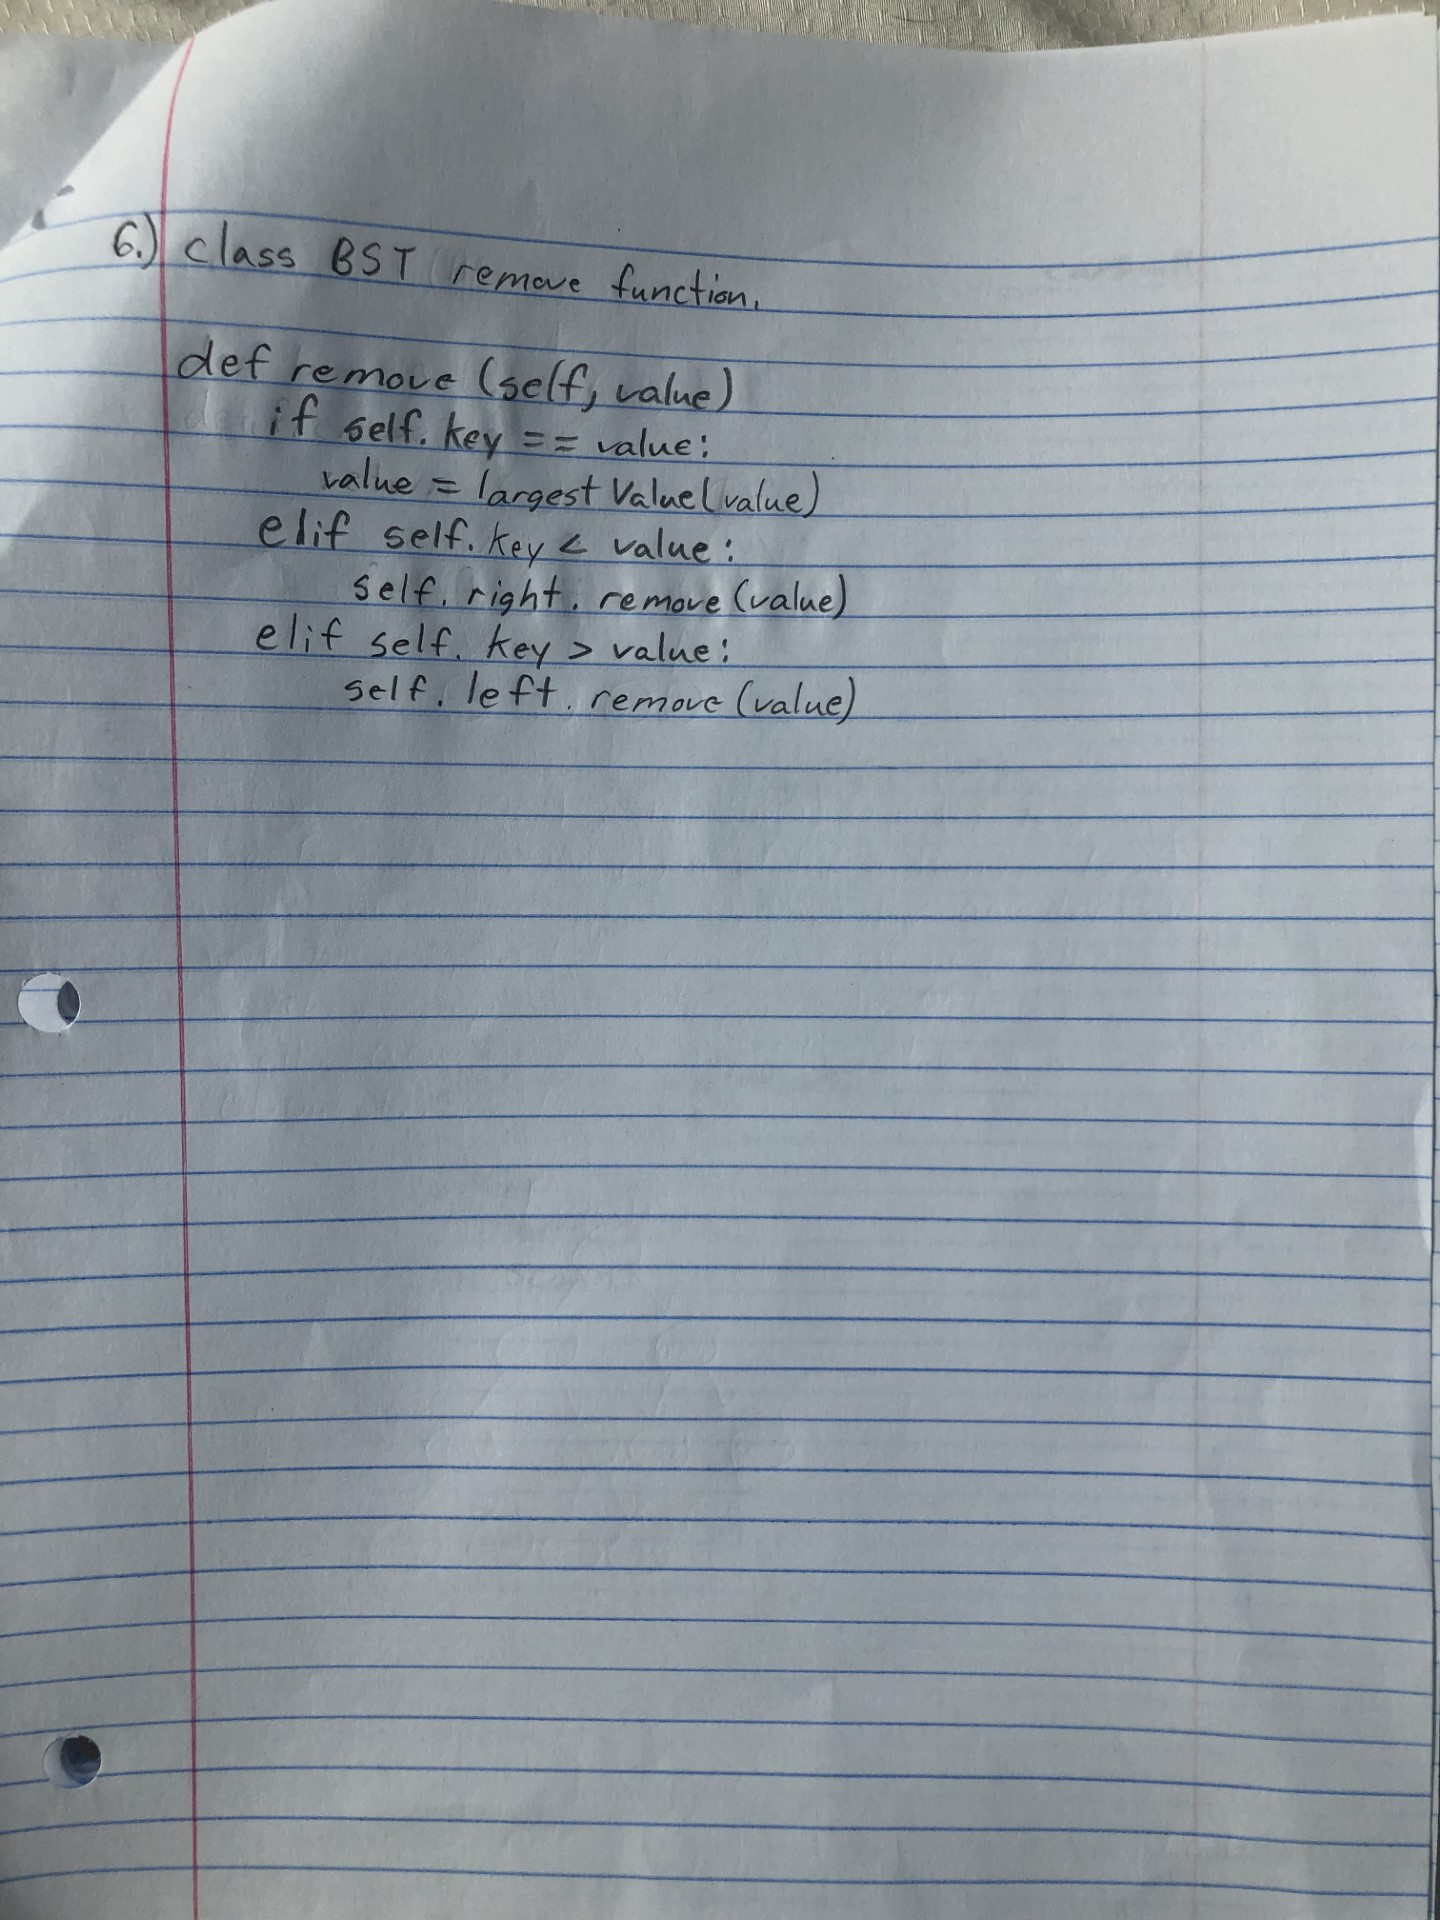 6.) class BST remove function.
def remove (self, value)
if self.key == value:
value = largest Value(value)
elif self.key < value:
self.right.remove(value)
elif self.key > value:
self.left.remove(value)